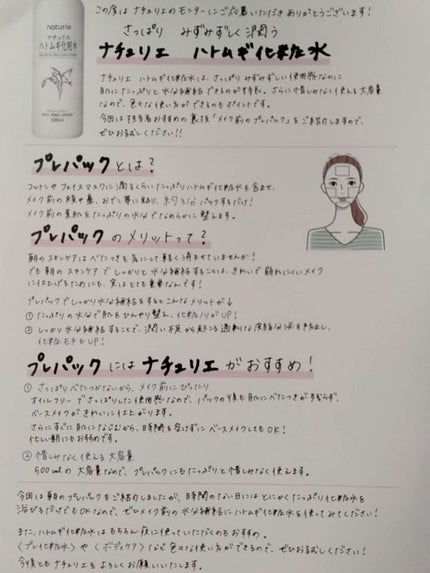 この度は ナチュリエのモニターにご応募いただき ありがとうございます！
さっぱり みずみずしく潤う
ナチュリエ ハトムギ化粧水
naturie
ナチュリエ
ハトムギ化粧水
500ml
ナチュリエ ハトムギ化粧水は、さっぱりみずみずしい使用感なのに
肌にたっぷりと水分補給できるのが特長。さらに惜しみなく使える大容量
なので、色々な使い方ができるのもポイントです。
今回は担当者おすすめの裏技「メイク前のプレパック」をご紹介しますので、
ぜひお試しください!!
プレパックとは？
コットンやフェイスマスクに潤るくらいたっぷりハトムギ化粧水を含ませ、
メイク前の頬や鼻、おでこ等に貼り、約3分パックするだけ！
メイク前の素肌をたっぷりの水分でなめらかに整えます。
プレパックのメリットって？
朝のスキンケアはべたつきを気にして軽く済ませていませんか！
でも朝のスキンケアでしっかりと水分補給することは、きれいで崩れにくいメイク
に仕上げるためにも、実はとても重要なんです！
プレパックでしっかり水分補給をするとこんなメリットが↓
① たっぷりの水分で肌をひんやり整え、化粧ノリがUP！
② しっかり水分補給することで、潤い不足から起こる過剰な皮脂分泌を予防し、
化粧モチもUP！
プレパックにはナチュリエがおすすめ！
① さっぱりべたつかないから、メイク前にぴったり
オイルフリーでさっぱりした使用感なので、パックの後も肌にべたつきが残らず、
ベースメイクがきれいに仕上がります。
さらにすぐに肌になじむから、時間を空けずにベースメイクしてもOK！
忙しい朝にもおすすめです。
② 惜しみなく使える大容量
500mlの大容量なので、プレパックにもたっぷりと惜しみなく使えます。
今回は朝のプレパックをご紹介しましたが、時間のない日にはとにかくたっぷり化粧水を
浴びるだけでもOKなので、ぜひメイク前の水分補給にハトムギ化粧水を使ってみてください！
また、ハトムギ化粧水はもちろん夜に使っていただくのもおすすめ。
〈プレ化粧水〉や〈ボディケア〉など色々な使い方ができるので、ぜひお試しください！
今後ともナチュリエをよろしくお願いいたします。